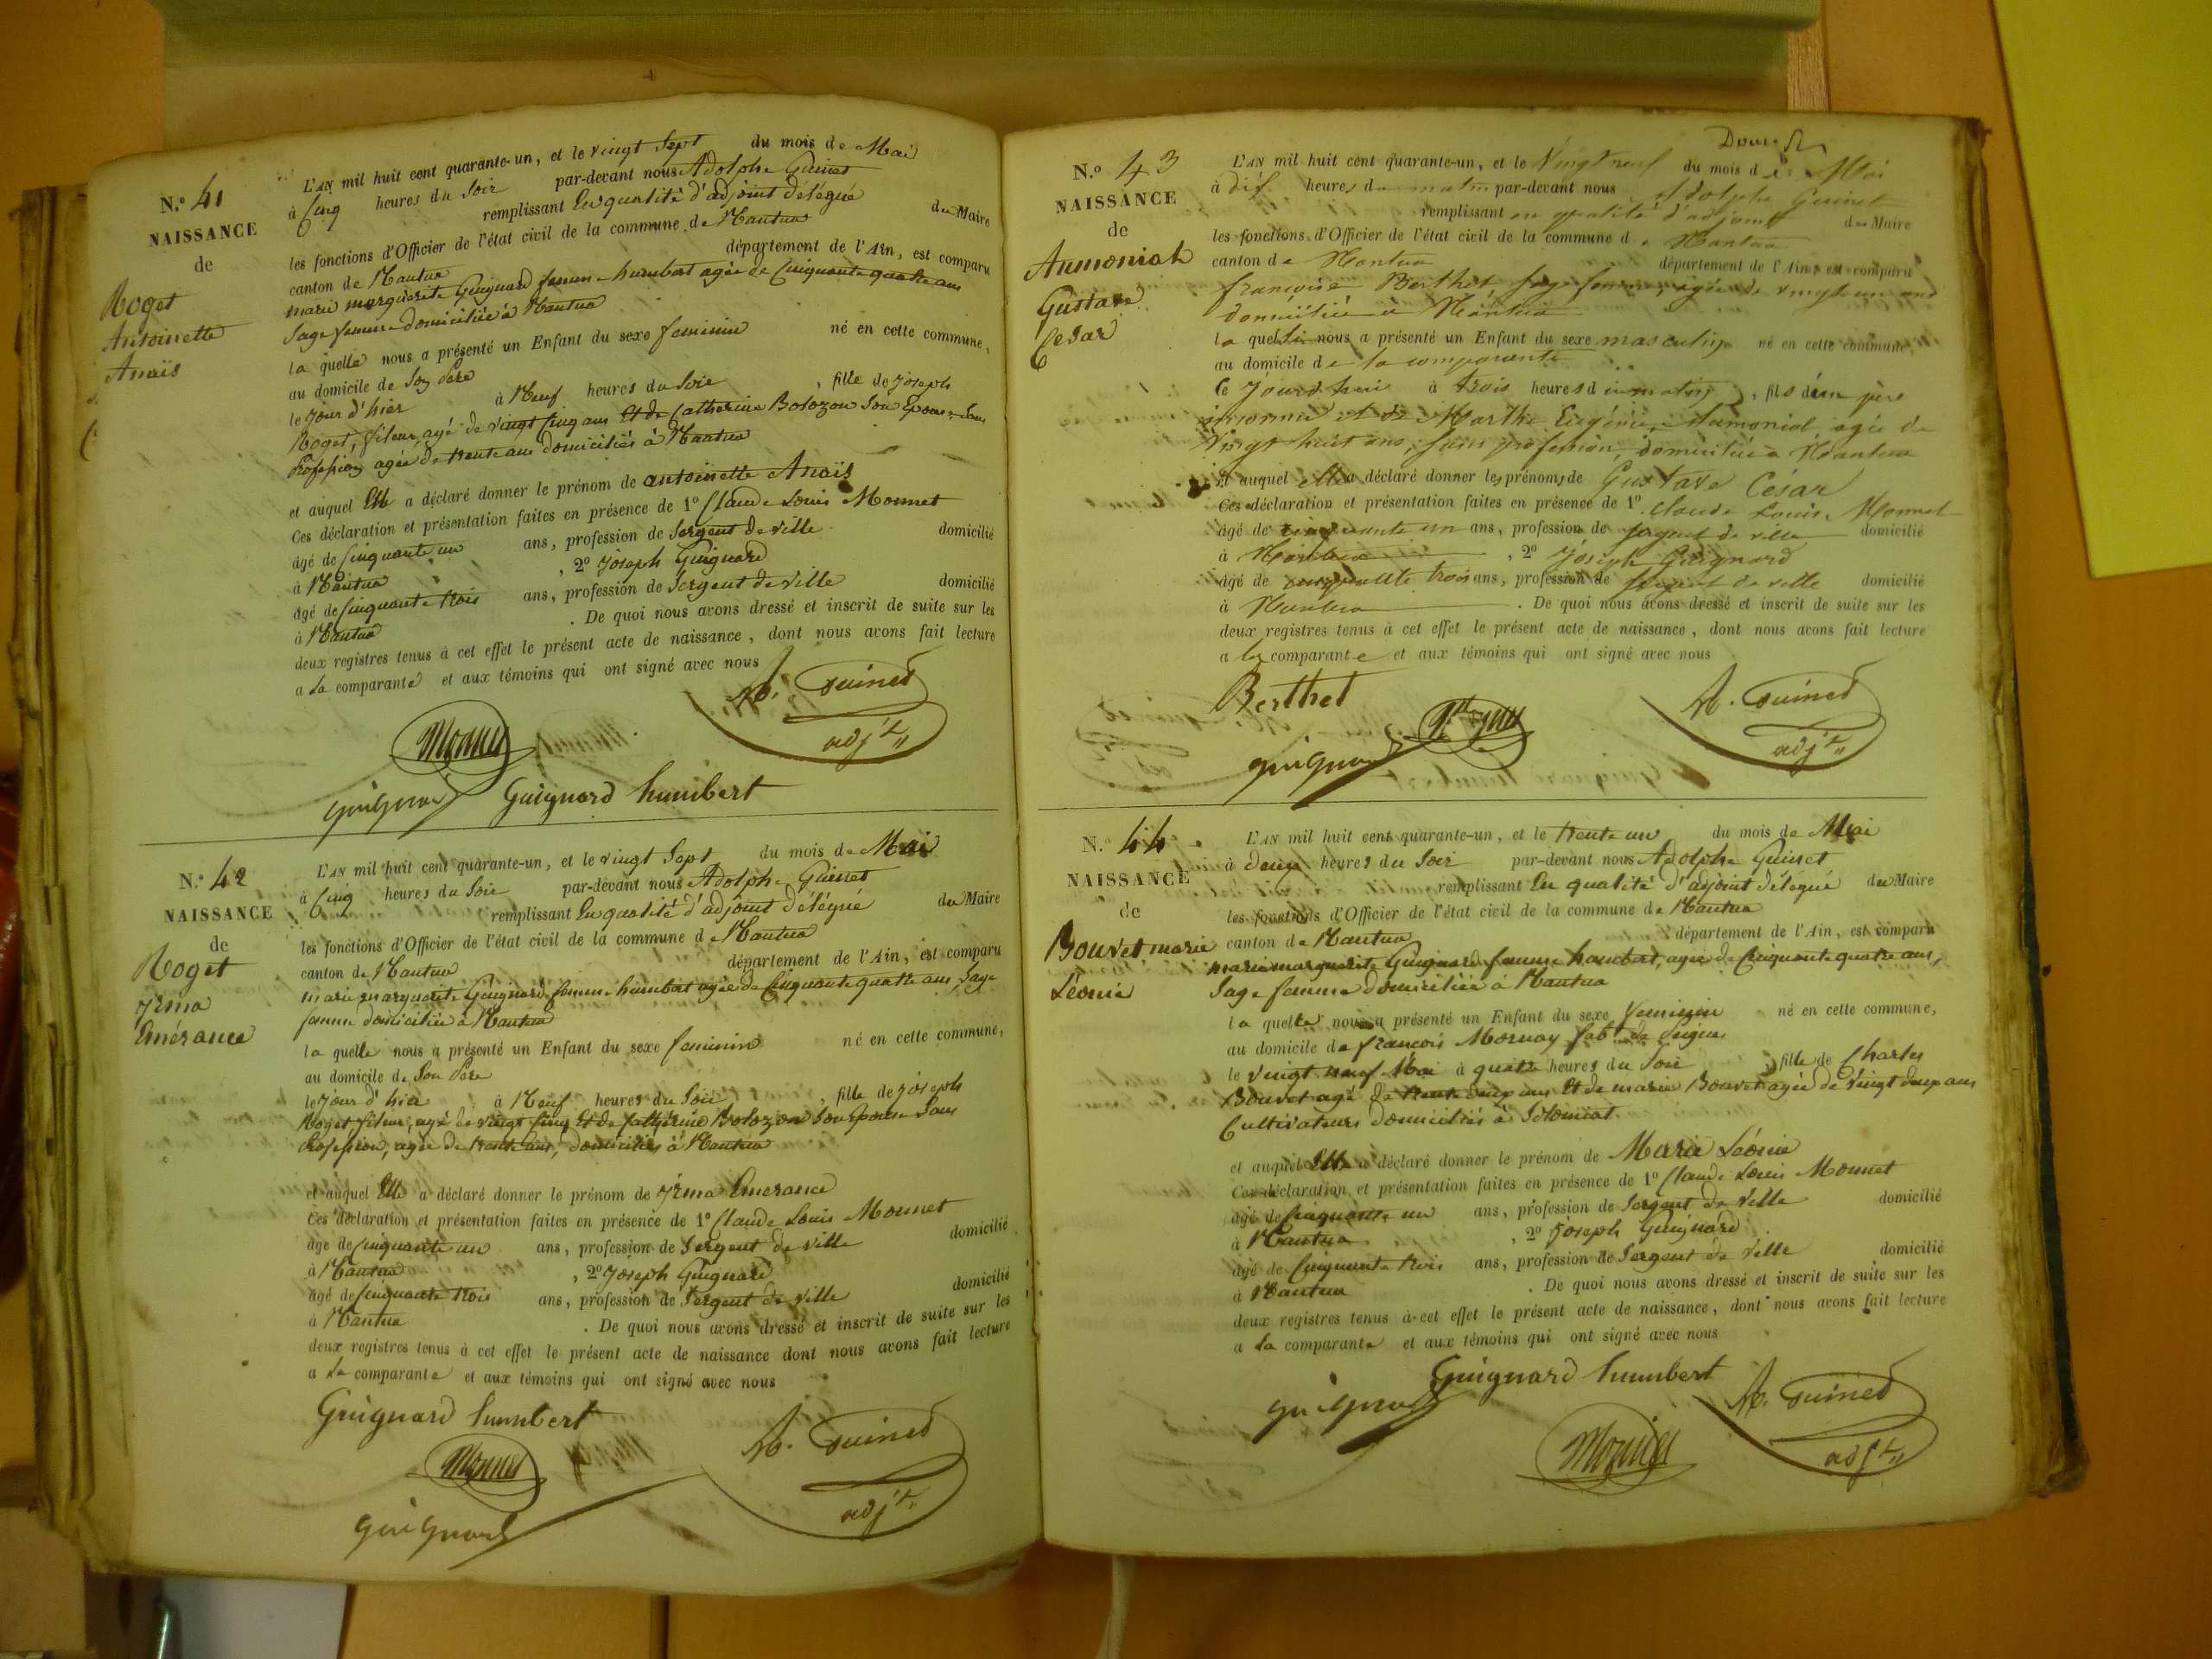 N.º 41
NAISSANCE
de
Roget
Antoinette
Anaïs
L'AN mil huit cent quarante-un, et le vingt Sept du mois de Mai
à Cinq heures du Soir par-devant nous Adolphe Guinet
remplissant En qualité d'adjoint délégué du Maire
les fonctions d'Officier de l'état civil de la commune de Nantua
canton de Nantua département de l'Ain, est comparu
marie marguerite Guignard femme humbert agée de Cinquante quatre ans
Sage femme domiciliée à Nantua
la quelle nous a présenté un Enfant du sexe feminin né en cette commune,
au domicile de Son Père
le jour d'hier à Neuf heures du Soir, fille de Joseph
Roget, fileur, agé de vingt Cinq ans Et de Catherine Bolozon Son Epouse Sans
Profession agée de trente ans domiciliés à Nantua
et auquel Elle a déclaré donner le prénom de antoinette Anaïs
Ces déclaration et présentation faites en présence de 1º Claude Louis Monnet
âgé de Cinquante un ans, profession de Sergent de ville domicilié
à Nantua, 2º Joseph Guignard
âgé de Cinquante trois ans, profession de Sergent de ville domicilié
à Nantua. De quoi nous avons dressé et inscrit de suite sur les
deux registres tenus à cet effet le présent acte de naissance, dont nous avons fait lecture
a la comparante et aux témoins qui ont signé avec nous
A. Guinet
adj.t
Monnet
guignard Guignard humbert
N.º 42
NAISSANCE
de
Roget
Irma
Emérance
L'AN mil huit cent quarante-un, et le vingt Sept du mois de Mai
à Cinq heures du Soir par-devant nous Adolphe Guinet
remplissant En qualité d'adjoint délégué du Maire
les fonctions d'Officier de l'état civil de la commune d Nantua
canton de Nantua département de l'Ain, est comparu
marie marguerite Guignard femme humbert agée de Cinquante quatre ans, Sage
femme domiciliée à Nantua
la quelle nous a présenté un Enfant du sexe feminin né en cette commune,
au domicile de Son Père
le jour d'hier à Neuf heures du Soir, fille de Joseph
Roget fileur, agé de vingt Cinq Et de Catherine Bolozon Son Epouse Sans
Profession, agée de trente ans, domiciliés à Nantua
et auquel Elle a déclaré donner le prénom de Irma Emerance
Ces déclaration et présentation faites en présence de 1º Claude Louis Monnet
âgé de Cinquante un ans, profession de Sergent de ville domicilié
à Nantua, 2º Joseph Guignard
âgé de Cinquante trois ans, profession de Sergent de ville domicilié
à Nantua. De quoi nous avons dressé et inscrit de suite sur les
deux registres tenus à cet effet le présent acte de naissance dont nous avons fait lecture
a la comparante et aux témoins qui ont signé avec nous
Guignard humbert
A. Guinet
adj.t
Monnet
guignard
N.º 43
NAISSANCE
de
Aumoniat
Gustave
Cesar
L'AN mil huit cent quarante-un, et le Vingt neuf du mois de Mai
à dix heures du matin par-devant nous Adolphe Guinet
remplissant en qualité d'adjoint du Maire
les fonctions d'Officier de l'état civil de la commune de Nantua
canton de Nantua département de l'Ain, est comparu
françoise Berthet sage femme, agée de vingt un ans
domiciliée à Nantua
la quelle nous a présenté un Enfant du sexe masculin né en cette commune,
au domicile de la comparante
le Jourd'hui à trois heures du matin, fils d'un père
inconnu et de Marthe Eugénie Aumoniat agée de
Vingt huit ans, sans profession, domiciliée à Nantua
et auquel elle a déclaré donner les prénoms de Gustave César
Ces déclaration et présentation faites en présence de 1º Claude Louis Monnet
âgé de cinquante un ans, profession de sergent de ville domicilié
à Nantua, 2º Joseph Guignard
âgé de cinquante trois ans, profession de sergent de ville domicilié
à Nantua. De quoi nous avons dressé et inscrit de suite sur les
deux registres tenus à cet effet le présent acte de naissance, dont nous avons fait lecture
a la comparante et aux témoins qui ont signé avec nous
Berthet
A. Guinet
adj.t
guignard
N.º 44
NAISSANCE
de
Bouvet marie
Léonie
L'AN mil huit cent quarante-un, et le trente un du mois de Mai
à deux heures du Soir par-devant nous Adolphe Guinet
remplissant En qualité d'adjoint délégué du Maire
les fonctions d'Officier de l'état civil de la commune de Nantua
canton de Nantua département de l'Ain, est comparu
marie marguerite Guignard femme humbert, agée de Cinquante quatre ans,
Sage femme domiciliée à Nantua
la quelle nous a présenté un Enfant du sexe feminin né en cette commune,
au domicile de françois Mornay fab.t de peignes
le vingt neuf Mai à quatre heures du Soir, fille de Charles
Bouvet agé de trente deux ans Et de marie Bouvet agée de vingt deux ans
Cultivateurs domiciliés à Solomiat
et auquel Elle a déclaré donner le prénom de Marie Léonie
Ces déclaration et présentation faites en présence de 1º Claude Louis Monnet
âgé de Cinquante un ans, profession de Sergent de ville domicilié
à Nantua, 2º Joseph Guignard
âgé de Cinquante trois ans, profession de Sergent de ville domicilié
à Nantua. De quoi nous avons dressé et inscrit de suite sur les
deux registres tenus à cet effet le présent acte de naissance, dont nous avons fait lecture
a la comparante et aux témoins qui ont signé avec nous
Guignard humbert
guignard A. Guinet
adj.t
Monnet